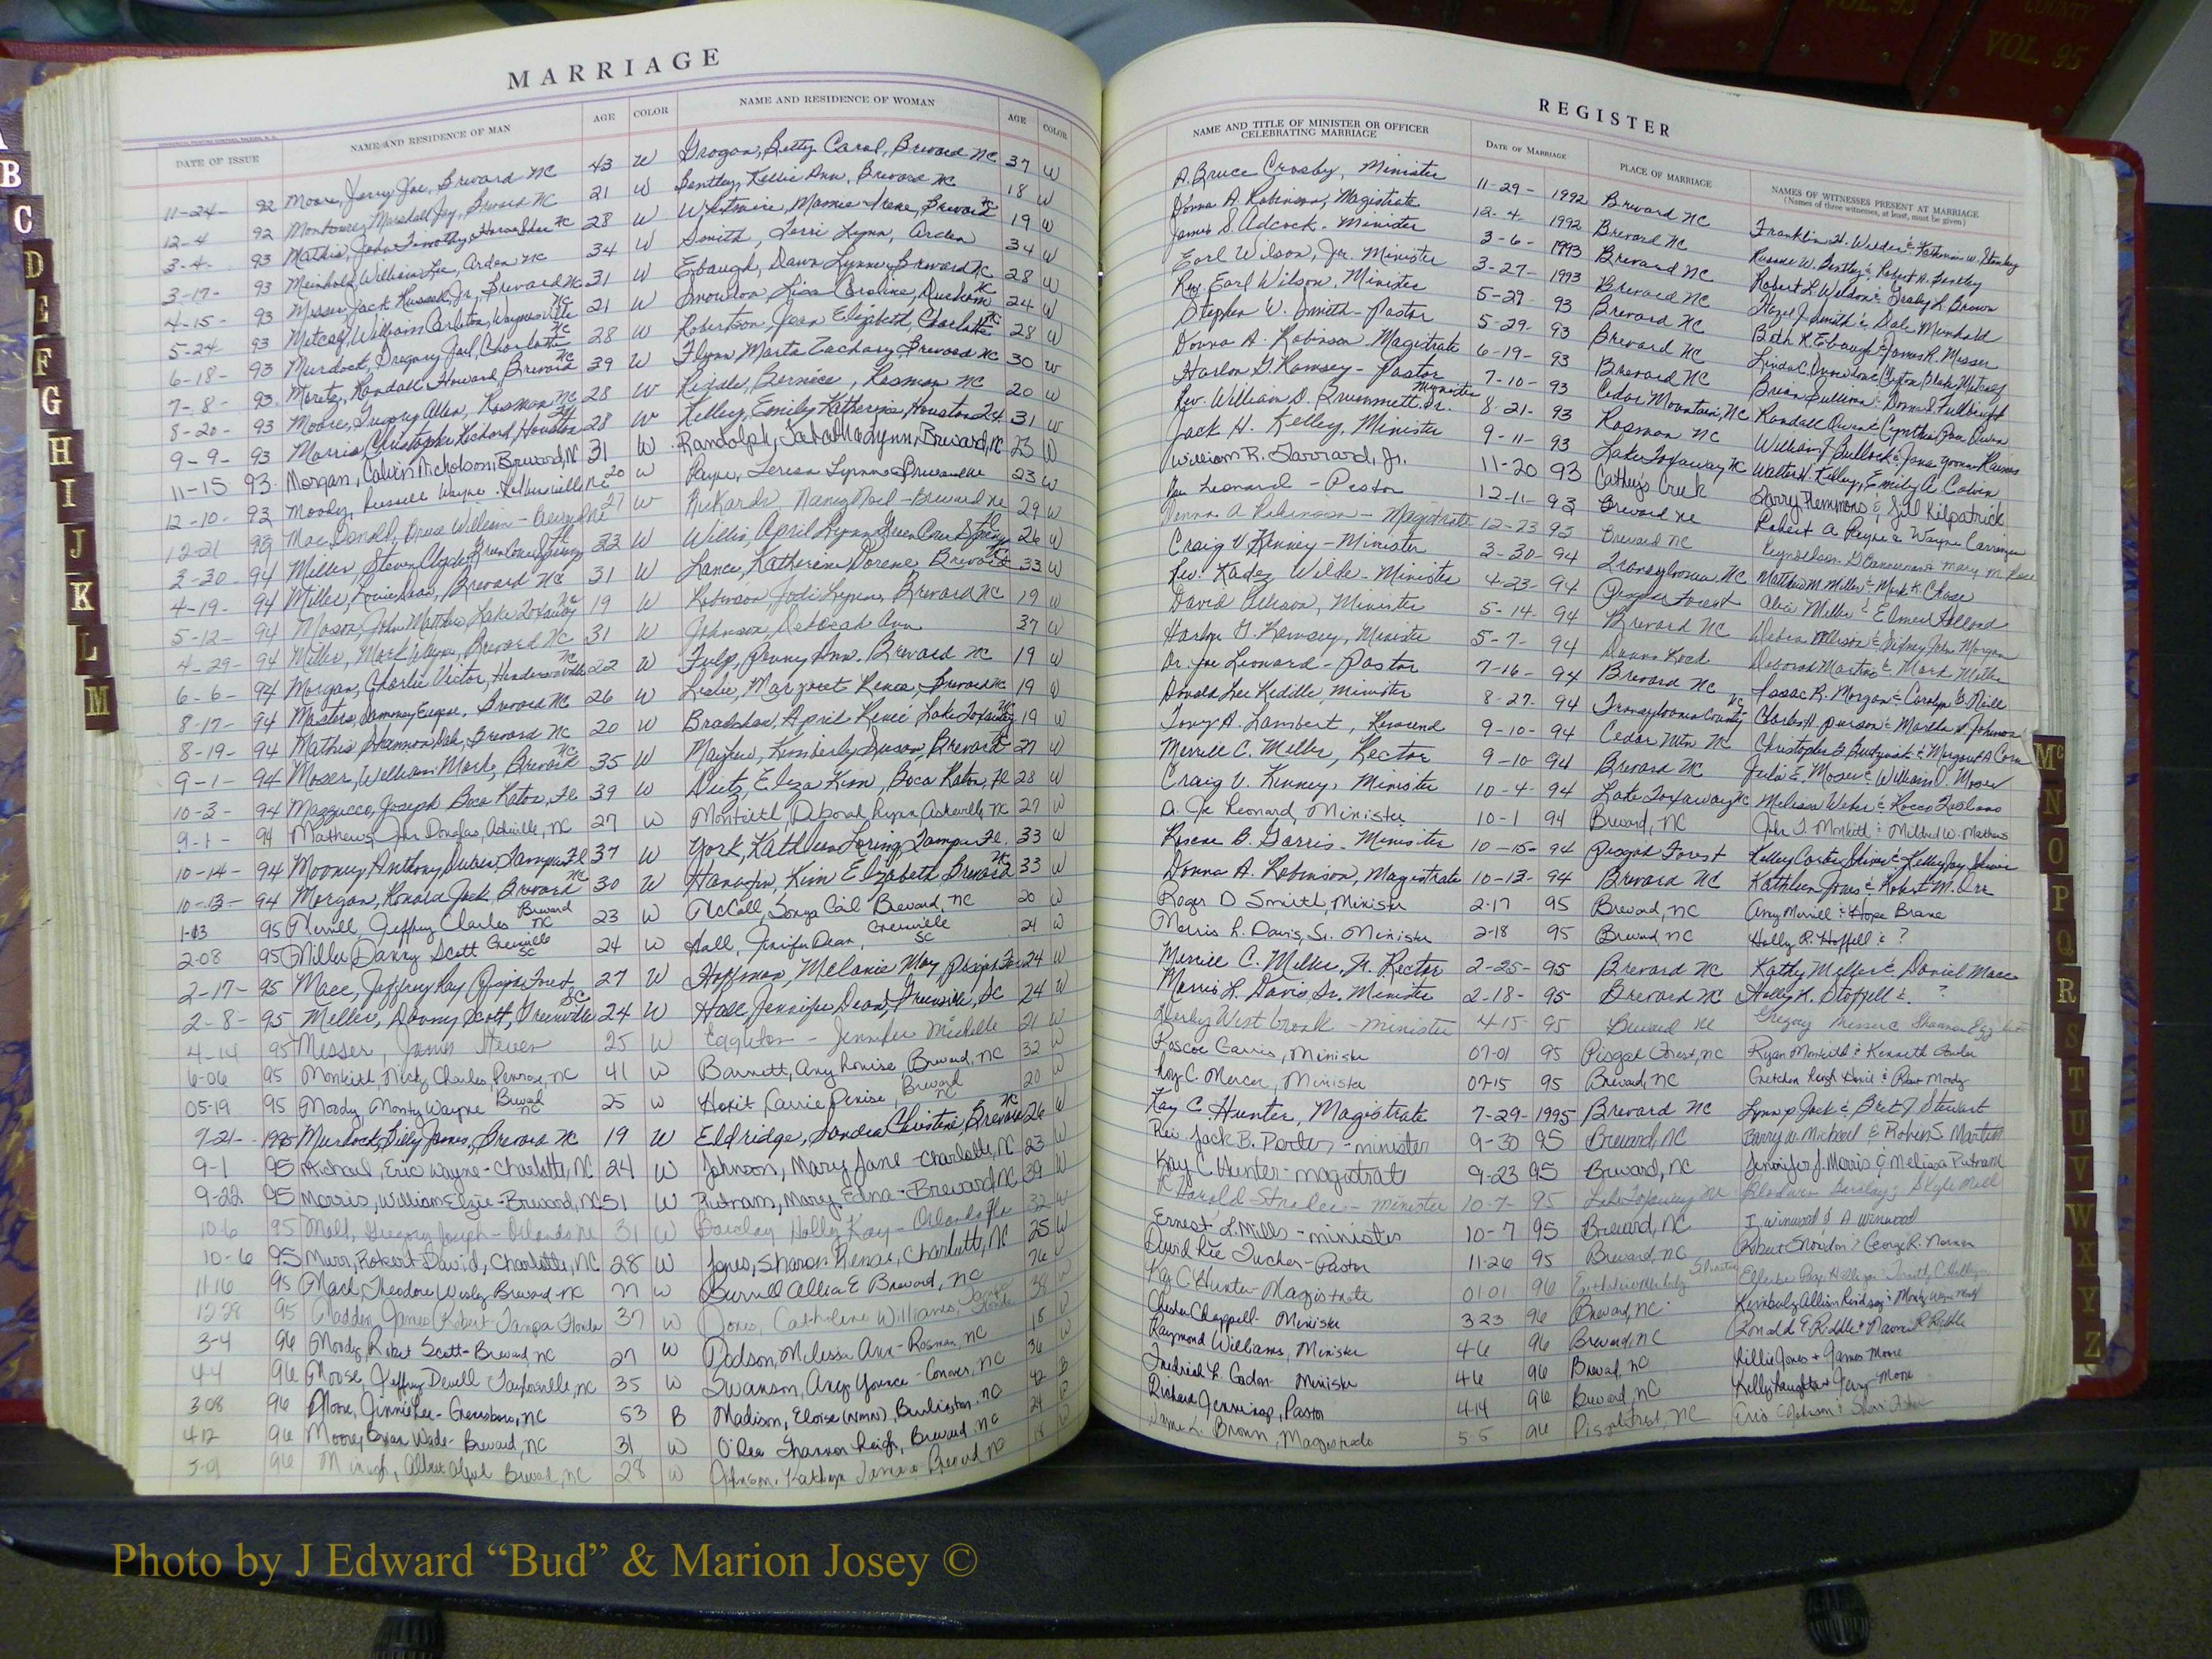 VOL. 95
COUNTY
VOL. 95
MARRIAGE
DATE OF ISSUE NAME AND RESIDENCE OF MAN AGE COLOR NAME AND RESIDENCE OF WOMAN AGE COLOR
11-24- 92 Moore, Jerry Joe, Brevard NC 43 W Grogan, Betty Carol, Brevard NC 37 W
12-4 92 Marshall Jay, Brevard NC 21 W Bentley, Kellie Ann, Brevard NC 18 W
3-4- 93 Mathis, John Timothy, NC 28 W Whitmire, Mamie Irene, Brevard NC 19 W
3-17- 93 Meinhold, William Lee, Arden NC 34 W Smith, Terri Lynn, Arden 34 W
4-15- 93 Messer, Jack Russell, Jr, Brevard NC 31 W Ebaugh, Dawn Lynne, Brevard NC 28 W
5-24- 93 Metcalf, William Carleton, Waynesville NC 21 W Snowdon, Lisa Caroline, Durham NC 24 W
6-18- 93 Murdock, Gregory Joel, Charlotte NC 28 W Robertson, Jean Elizabeth, Charlotte NC 28 W
7-8- 93 Moretz, Randall Howard, Brevard NC 39 W Flynn Marta Zachary, Brevard NC 30 W
8-20- 93 Moore, Gregory Allen, Rosman NC 28 W Riddle, Bernice, Rosman NC 20 W
9-9- 93 Morris, Christopher Richard, Houston 28 W Kelley, Emily Katherine, Houston 31 W
11-15 93 Morgan, Calvin Nicholson, Brevard, N 31 W Randolph, Lynn, Brevard, NC 23 W
12-10- 93 Moody, Russell Wayne 20 W Payne, Teresa Lynn 23 W
12-21 93 MacDonald, Bruce William 27 W Rickards Nancy Noel - Brevard NC 29 W
3-30- 94 Miller, Steven Clyde, Green Cove Springs 33 W Willis, April Lynn, Green Cove Springs 26 W
4-19- 94 Miller, Louie Dean, Brevard NC 31 W Lance, Katherine Dorene Brevard 33 W
5-12- 94 Mason, John Matthew, Lake Toxaway NC 19 W Robinson Jodi Lynn, Brevard NC 19 W
4-29- 94 Miller, Mark Wayne, Brevard NC 31 W Johnson, Deborah Ann 37 W
6-6- 94 Morgan, Charlie Victor, Hendersonville NC 22 W Fulp, Penny Ann, Brevard NC 19 W
8-17- 94 Masters, Sammy Eugene, Brevard NC 26 W Leslie, Margaret Renee, Brevard NC 19 W
8-19- 94 Mathis Shannon Dale, Brevard NC 20 W Bradshaw, April Renee Lake Toxaway NC 19 W
9-1- 94 Moser, William Mark, Brevard NC 35 W Mayhew, Kimberly Susan, Brevard 27 W
10-3- 94 Mazzucco, Joseph Boca Raton, Fl 39 W Dietz, Eliza Kim, Boca Raton, Fl 28 W
9-1- 94 Mathews, John Douglas, Asheville, NC 27 W Monteith, Deborah Lynn Asheville, NC 27 W
10-14- 94 Mooney Anthony, Tampa Fl 37 W York, Kathleen Loring, Tampa Fl. 33 W
10-13- 94 Morgan, Ronald Jack, Brevard NC 30 W Kim Elizabeth, Brevard NC 33 W
1-13 95 Merrill, Jeffrey Charles Brevard NC 23 W McCall, Sonya Gail Brevard, NC 20 W
2-08 95 Miller Danny Scott Greenville SC 24 W Hall, Jennifer Dean, Greenville SC 24 W
2-17- 95 Mace, Jeffrey Ray Pisgah Forest 27 W Hoffman, Melanie May Pisgah For 24 W
2-8- 95 Miller, Danny Scott, Greenville SC 24 W Hall, Jennifer Dean, Greenville, SC 24 W
4-14 95 Messer, James Steven 25 W Eggleton - Jennifer Michelle 21 W
6-06 95 Monteith, Ricky Charles, Penrose, NC 41 W Barnett, Amy Louise, Brevard, NC 32 W
05-19 95 Moody Monty Wayne Brevard NC 25 W Carrie Denise, Brevard NC 20 W
7-21- 1995 Murdock, Billy James, Brevard NC 19 W Eldridge, Sandra Christine, Brevard NC 26 W
9-1 95 Michael, Eric Wayne - Charlotte, NC 24 W Johnson, Mary Jane - Charlotte, NC 23 W
9-22 95 Morris, William Elzie - Brevard, NC 51 W Putnam, Mary Edna - Brevard NC 39 W
10-6 95 Moll, Gregory Joseph - Orlando 31 W Barclay Holly Kay - Orlando Fla 32 W
10-6 95 Murr, Robert David, Charlotte, NC 28 W Jones, Sharon Renae, Charlotte, NC 25 W
11-16 95 Mack, Theodore Wesley Brevard NC 77 W Burrell Allia E Brevard, NC 76 W
12-28 95 Madden, James Robert - Tampa Florida 37 W Jones, Catherine Williams, Tampa Florida 38 W
3-4 96 Moody, Robert Scott - Brevard NC 27 W Dodson, Melissa Ann - Rosman, NC 18 W
4-4 96 Moose, Jeffrey Devell - Taylorsville, NC 35 W Swanson, Amy Younce - Conover, NC 36 W
3-08 96 Moore, Jinnie Lee - Greensboro, NC 53 B Madison, Eloise (NMN), Burlington, NC 42 B
4-12 96 Moore, Bryan Wade - Brevard, NC 31 W O'Dea Shannon Leigh, Brevard, NC 24 W
5-9 96 Brevard, NC 28 W Johnson, Kathryn Brevard NC 18 W
REGISTER
NAME AND TITLE OF MINISTER OR OFFICER CELEBRATING MARRIAGE DATE OF MARRIAGE PLACE OF MARRIAGE NAMES OF WITNESSES PRESENT AT MARRIAGE
(Names of three witnesses, at least, must be given)
A. Bruce Crosby, Minister 11-29- 1992 Brevard NC Franklin H. Wilder & Katherine W. Stanley
Donna A. Robinson, Magistrate 12-4 1992 Brevard NC Russell W. Bentley & Robert A. Bentley
James S. Adcock - Minister 3-6- 1993 Brevard NC Robert L. Wilson & L. Brown
Earl Wilson, Jr. Minister 3-27- 1993 Brevard NC Hazel J. Smith & Dale Meinhold
Rev. Earl Wilson, Minister 5-29- 93 Brevard NC Beth K. Ebaugh & James R. Messer
Stephen W. Smith - Pastor 5-29- 93 Brevard NC Linda C. Snowdon & Clifton Blake Metcalf
Donna A. Robinson Magistrate 6-19- 93 Brevard NC Brian Sullivan & Donna S. Fulbright
Harlon G. Ramsey - Pastor 7-10- 93 Cedar Mountain, NC Randall Owen & Cynthia Owen
Rev. William D. Grummett, Sr. Minister 8-21- 93 Rosman NC William J. Bullock &
Jack H. Kelley, Minister 9-11- 93 Lake Toxaway NC Walter H. Kelley, Emily A. Colvin
William R. Garrard, Jr. 11-20 93 Cathey's Creek Larry Hemmons & Jill Kilpatrick
Joe Leonard - Pastor 12-11- 93 Brevard NC Robert A Payne & Wayne
Donna A Robinson - Magistrate 12-23 93 Brevard NC
Craig V. Kinney - Minister 3-30- 94 Transylvania, NC Matthew M. Miller & Mark K. Chase
Rev. Wilde - Minister 4-23- 94 Pisgah Forest Alice Miller & Elmer Holland
David Gleason, Minister 5-14- 94 Brevard NC & Sidney John Morgan
Harlon G. Ramsey, Minister 5-7- 94 Dunns Rock Deborah Martin & Mark Miller
Dr. Joe Leonard - Pastor 7-16- 94 Brevard NC Isaac R. Morgan & Carolyn B. Neill
Donald Lee Reddle, Minister 8-27- 94 Transylvania County NC Charles H. & Martha S. Johnson
Tony A. Lambert, Reverend 9-10- 94 Cedar Mtn NC Christopher & Margaret A
Merrill C. Miller, Rector 9-10 94 Brevard NC Julia E. Moser & William D. Moser
Craig V. Kinney, Minister 10-4- 94 Lake Toxaway NC Melissa Weber & Rocco
D. Joe Leonard, Minister 10-1 94 Brevard, NC John T. Monteith & Mildred W. Mathews
Roscoe B. Garris - Minister 10-15- 94 Pisgah Forest
Donna A. Robinson, Magistrate 10-13- 94 Brevard NC Kathleen Jones & Robert M. Orr
Roger D Smith, Minister 2-17 95 Brevard, NC Amy Merrill & Hope Brane
Morris L. Davis, Sr. Minister 2-18 95 Brevard NC Holly R. Hoffell & ?
Merrill C. Miller, Jr. Rector 2-25- 95 Brevard NC Kathy Miller & Daniel Mace
Morris L. Davis Sr. Minister 2-18- 95 Brevard NC Holly R. Stoffell & ?
Derby Westbrook - Minister 4-15 95 Brevard NC Gregory Messer &
Roscoe Garris, Minister 07-01 95 Pisgah Forest, NC Ryan Monteith & Kenneth
Roy C. Mercer, Minister 07-15 95 Brevard, NC Gretchen Leigh & Robert Moody
Kay C Hunter, Magistrate 7-29- 1995 Brevard NC Lynn P Jack & Bret J Stewart
Rev. Jack B. Porter, - minister 9-30 95 Brevard, NC Barry W. Michael & Robin S. Martin
Kay C. Hunter - magistrate 9-23 95 Brevard, NC Jennifer J. Morris & Melissa Putnam
Harold - minister 10-7- 95 Lake Toxaway NC
Ernest L. Mills - minister 10-7 95 Brevard, NC I. Winwood & A Winwood
David Lee Tucker - Pastor 11-26 95 Brevard, NC Robert Snowdon & George R. Norman
Kay C Hunter - Magistrate 01 01 96
Chester Chappell - Minister 3 23 96 Brevard, NC Kimberly Allison Lindsay & Monty Wayne Moody
Raymond Williams, Minister 4-6 96 Brevard, NC Ronald E. Riddle & Naomi R Riddle
Fredrick L. Minister 4 6 96 Brevard, NC Lillie Jones + James Moore
Richard Jennings, Pastor 4-14 96 Brevard, NC Kelly + Jerry Moore
James L. Brown, Magistrate 5-5 96 Pisgah Forest, NC
B
C
D
E
F
G
H
I
J
K
L
M
Mc
N
O
P
Q
R
S
T
U
V
W
X
Y
Z
Photo by J Edward “Bud” & Marion Josey ©